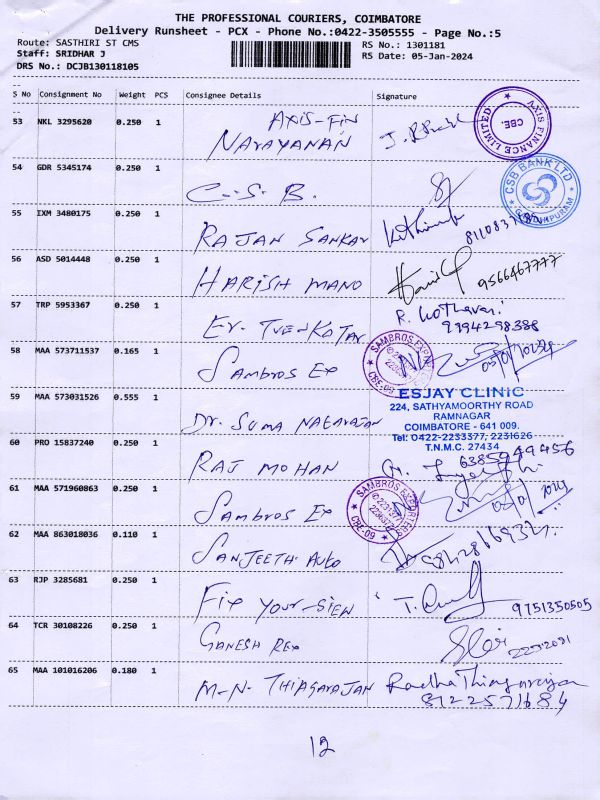 THE PROFESSIONAL COURIERS, COIMBATORE
Delivery Runsheet - PCX - Phone No.:0422-3505555 - Page No.:5
Route: SASTHIRI ST CMS
Staff: SRIDHAR J
DRS No.: DCJB130118105
RS No.: 1301181
RS Date: 05-Jan-2024
S No Consignment No Weight PCS Consignee Details Signature
53 NKL 3295620 0.250 1 AXIS-FIN
NARAYANAN
AXIS FINANCE LIMITED
CBE.
54 GDR 5345174 0.250 1 C.S.B.
CSB BANK LTD
55 IXM 3480175 0.250 1 RAJAN SANKAR
56 ASD 5014448 0.250 1 HARISH MANO 9566467777
57 TRP 5953367 0.250 1 R. Kothavari
9394298388
58 MAA 573711537 0.165 1 Sambros Ex
SAMBROS EXPORTERS
CBE-09
59 MAA 573031526 0.555 1 DR. SUMA NATARAJAN
ESJAY CLINIC
224, SATHYAMOORTHY ROAD
RAMNAGAR
COIMBATORE - 641 009.
Tel: 0422-2233377, 2231626
T.N.M.C. 27434
60 PRO 15837240 0.250 1 RAJ MOHAN 6385949456
61 MAA 571960863 0.250 1 Sambros Ex
SAMBROS EXPORTERS
CBE-09
62 MAA 863018036 0.110 1 SANJEETH AUTO
63 RJP 3285681 0.250 1 FIX YOUR-SIEW 9751350505
64 TCR 30108226 0.250 1 GANESH REX
65 MAA 101016206 0.180 1 M-N- THIAGARAJAN Radha Thiagarajan
8122571684
12